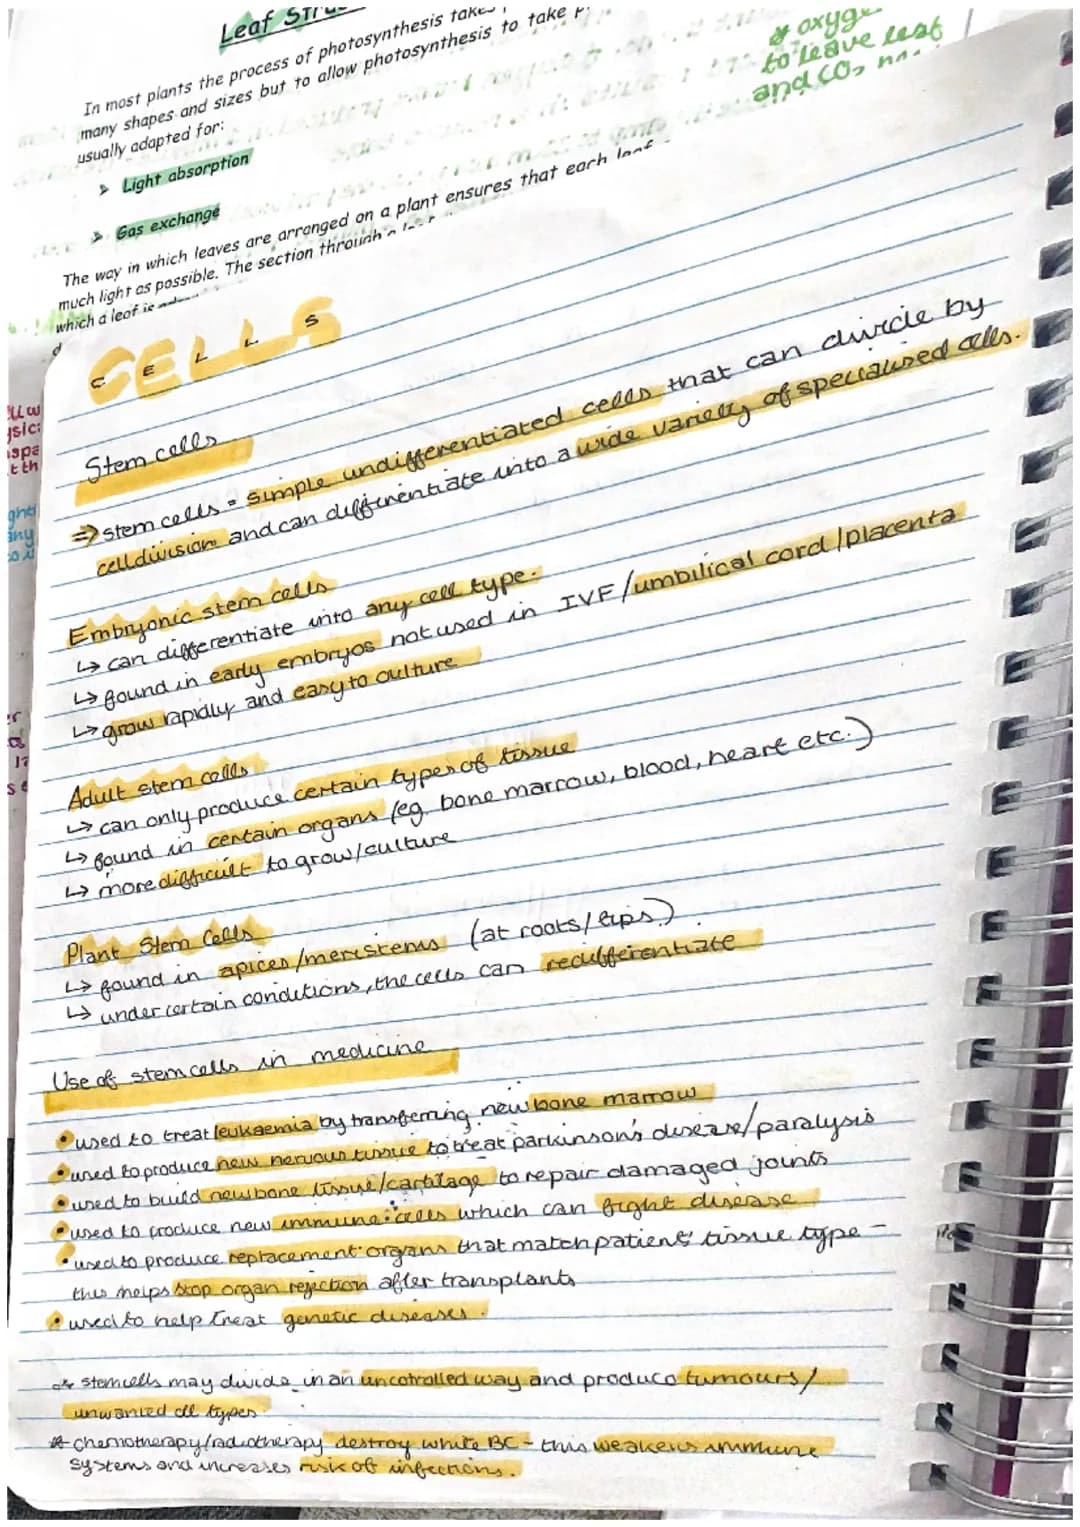 Leaf
In most plants the process of photosynthesis
many shapes and sizes but to allow photosynthesis to take
usually adapted for:
Light absorption
Gas exchange
The way in which leaves are arranged on a plant ensures that each
much light as possible. The section through
which a leaf is
to leave leaf
and CO2
CELLS
C E L L S
Stem cells
⇒ stem cells = simple undifferentiated cells that can divide by
cell division and can differentiate into a wide variety of specialised cells.
Embryonic stem cells
↳ can differentiate into any cell type.
↳ found in early embryos not used in IVF/umbilical cord/placenta
↳ grow rapidly and easy to culture
Adult stem cells
↳ can only produce certain types of tissue
↳ found in certain organs (eg. bone marrow, blood, heart etc.)
↳ more difficult to grow/culture
Plant Stem Cells
↳ found in apices/meristems (at roots/tips)
↳ under certain conditions, the cells can redifferentiate
Use of stem cells in medicine
• used to treat leukaemia by transferring new bone marrow
• used to produce new nervous tissue to treat parkinson's disease/paralysis
• used to build new bone tissue/cartilage to repair damaged joints
• used to produce new immune cells which can fight disease
• used to produce replacement organs that match patients' tissue type -
this helps stop organ rejection after transplants
• used to help treat genetic diseases.
* stem cells may divide in an uncotrolled way and produce tumours/
unwanted cell types
* chemotherapy/radiotherapy destroy white BC - this weakens immune
systems and increases risk of infections.